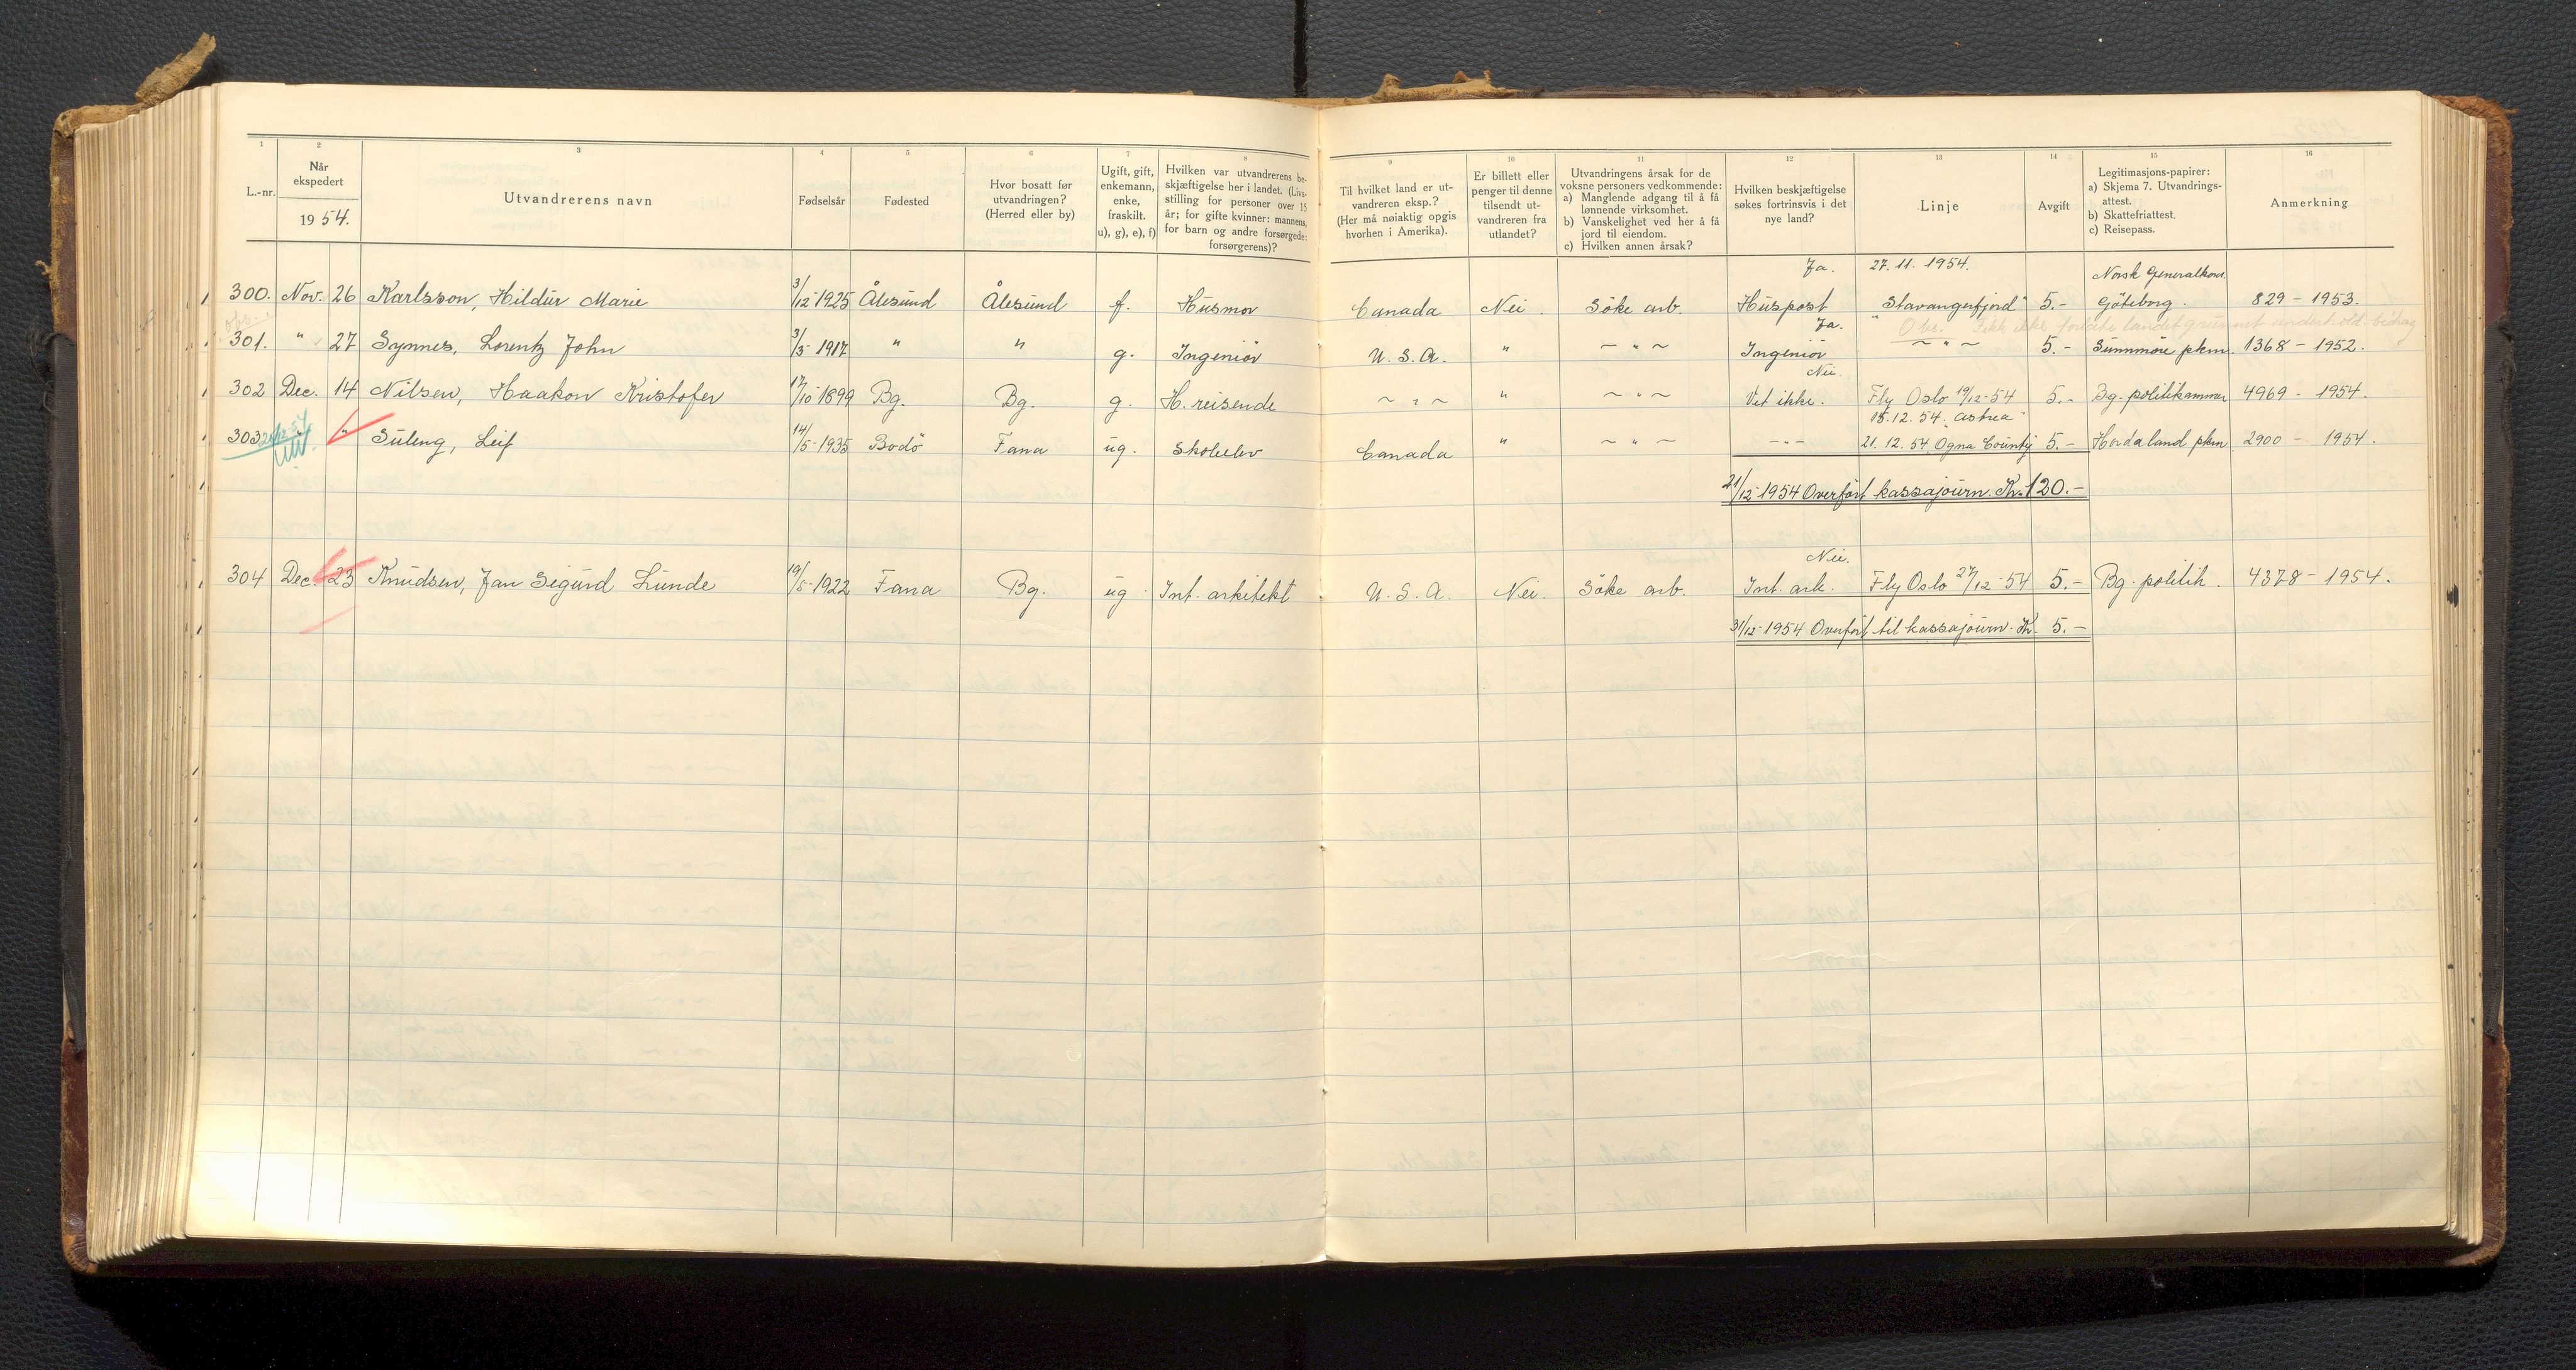 1 2 3 4 5 6 7 8 9 10 11 12 13 14 15 16
L.-nr.
Når ekspedert
1954.
Utvandrerens navn
Fødselsår
Fødested
Hvor bosatt før utvandringen? (Herred eller by)
Ugift, gift, enkemann, enke, fraskilt. u), g), e), f)
Hvilken var utvandrerens beskjæftigelse her i landet. (Livsstilling for personer over 15 år; for gifte kvinner: mannens, for barn og andre forsørgede: forsørgerens)?
Til hvilket land er utvandreren eksp.? (Her må nøiaktig opgis hvorhen i Amerika).
Er billett eller penger til denne tilsendt utvandreren fra utlandet?
Utvandringens årsak for de voksne personers vedkommende:
a) Manglende adgang til å få lønnende virksomhet.
b) Vanskelighet ved her å få jord til eiendom.
c) Hvilken annen årsak?
Hvilken beskjæftigelse søkes fortrinsvis i det nye land?
Linje
Avgift
Legitimasjons-papirer:
a) Skjema 7. Utvandringsattest.
b) Skattefriattest.
c) Reisepass.
Anmerkning
Ja. 27.11.1954. Norsk Generalkons.
300. Nov. 26 Karlsson, Hildur Marie 3/12-1925 Ålesund Ålesund f. Husmor Canada Nei. Søke arb. Huspost "Stavangerfjord" 5.- Göteborg. 829 - 1953.
Ja. Obs.
301. " 27 Synnes, Lorentz John 3/3-1917 " " g. Ingeniør U.S.A. " ~ " ~ Ingeniør ~ " ~ 5.- Sunnmøre pkm. 1368 - 1952.
Nei.
302 Dec. 14 Nilsen, Haakon Kristofer 17/10-1899 Bg. Bg. g. H. reisende ~ " ~ " ~ " ~ Vet ikke. Fly Oslo 19/12-54 5.- Bg. politikammer 4969 - 1954.
18.12.54. Astrea
303 " Suleng, Leif 14/5-1935 Bodø Fana ug. Skoleelev Canada " ~ " ~ - " - 21.12.54 Ogna County 5.- Hordaland pkm 2900 - 1954.
21/12-1954 Overført kassajourn. Kr. 120.-
Nei.
304 Dec. 23 Knudsen, Jan Sigurd Lunde 19/5-1922 Fana Bg. ug Int. arkitekt U.S.A. Nei. Søke arb. Int. ark. Fly Oslo 27/12-54 5.- Bg. politik. 4378 - 1954.
31/12-1954 Overført til kassajourn. Kr. 5.-